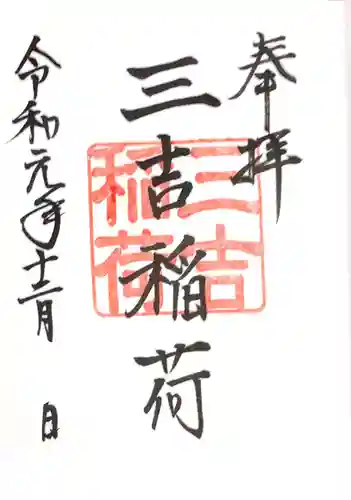 奉拝
三吉稲荷
三吉稲荷
令和元年十二月 日